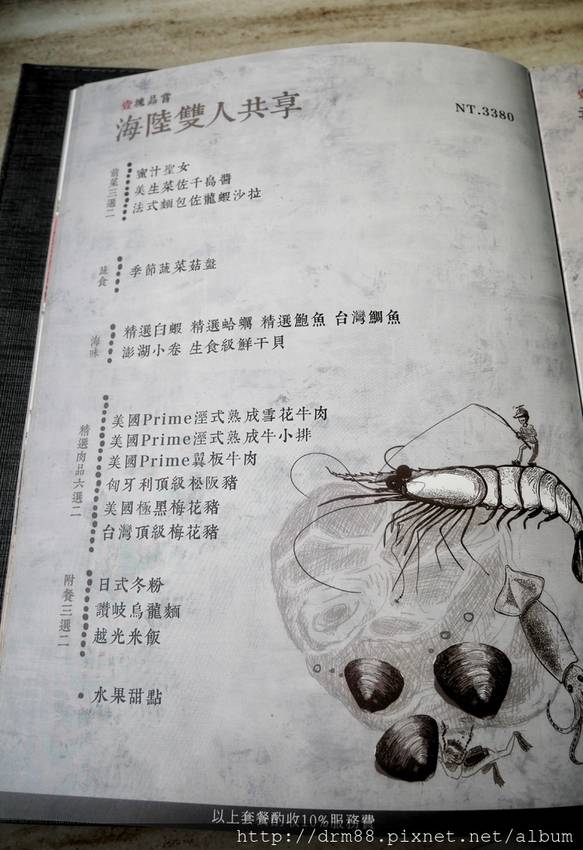 壹塊品嘗
海陸雙人共享
NT.3380
前菜三選二
蜜汁聖女
美生菜佐千島醬
法式麵包佐龍蝦沙拉
蔬食
季節蔬菜菇盤
海味
精選白蝦 精選蛤蠣 精選鮑魚 台灣鯛魚
澎湖小卷 生食級鮮干貝
精選肉品六選二
美國Prime溼式熟成雪花牛肉
美國Prime溼式熟成牛小排
美國Prime翼板牛肉
匈牙利頂級松阪豬
美國極黑梅花豬
台灣頂級梅花豬
附餐三選二
日式冬粉
讚岐烏龍麵
越光米飯
水果甜點
以上套餐酌收10%服務費
http://drm88.pixnet.net/album